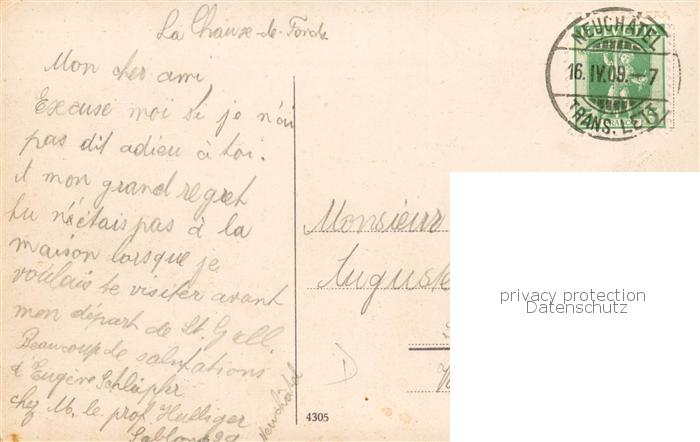 La Chaux-de-Fonds
Mon cher ami,
Excuse moi si je n'ai
pas dit adieu à toi.
A mon grand regret
tu n'étais pas à la
maison lorsque je
voulais te visiter avant
mon départ de St. Gall.
Beaucoup de salutations
d'Eugène Schläpfer
chez M. le prof. Hulliger
Sablons 29
Neuchâtel
NEUCHÂTEL
16. IV. 09. – 7
TRANS. LETT.
Monsieur
Auguste
privacy protection
Datenschutz
4305